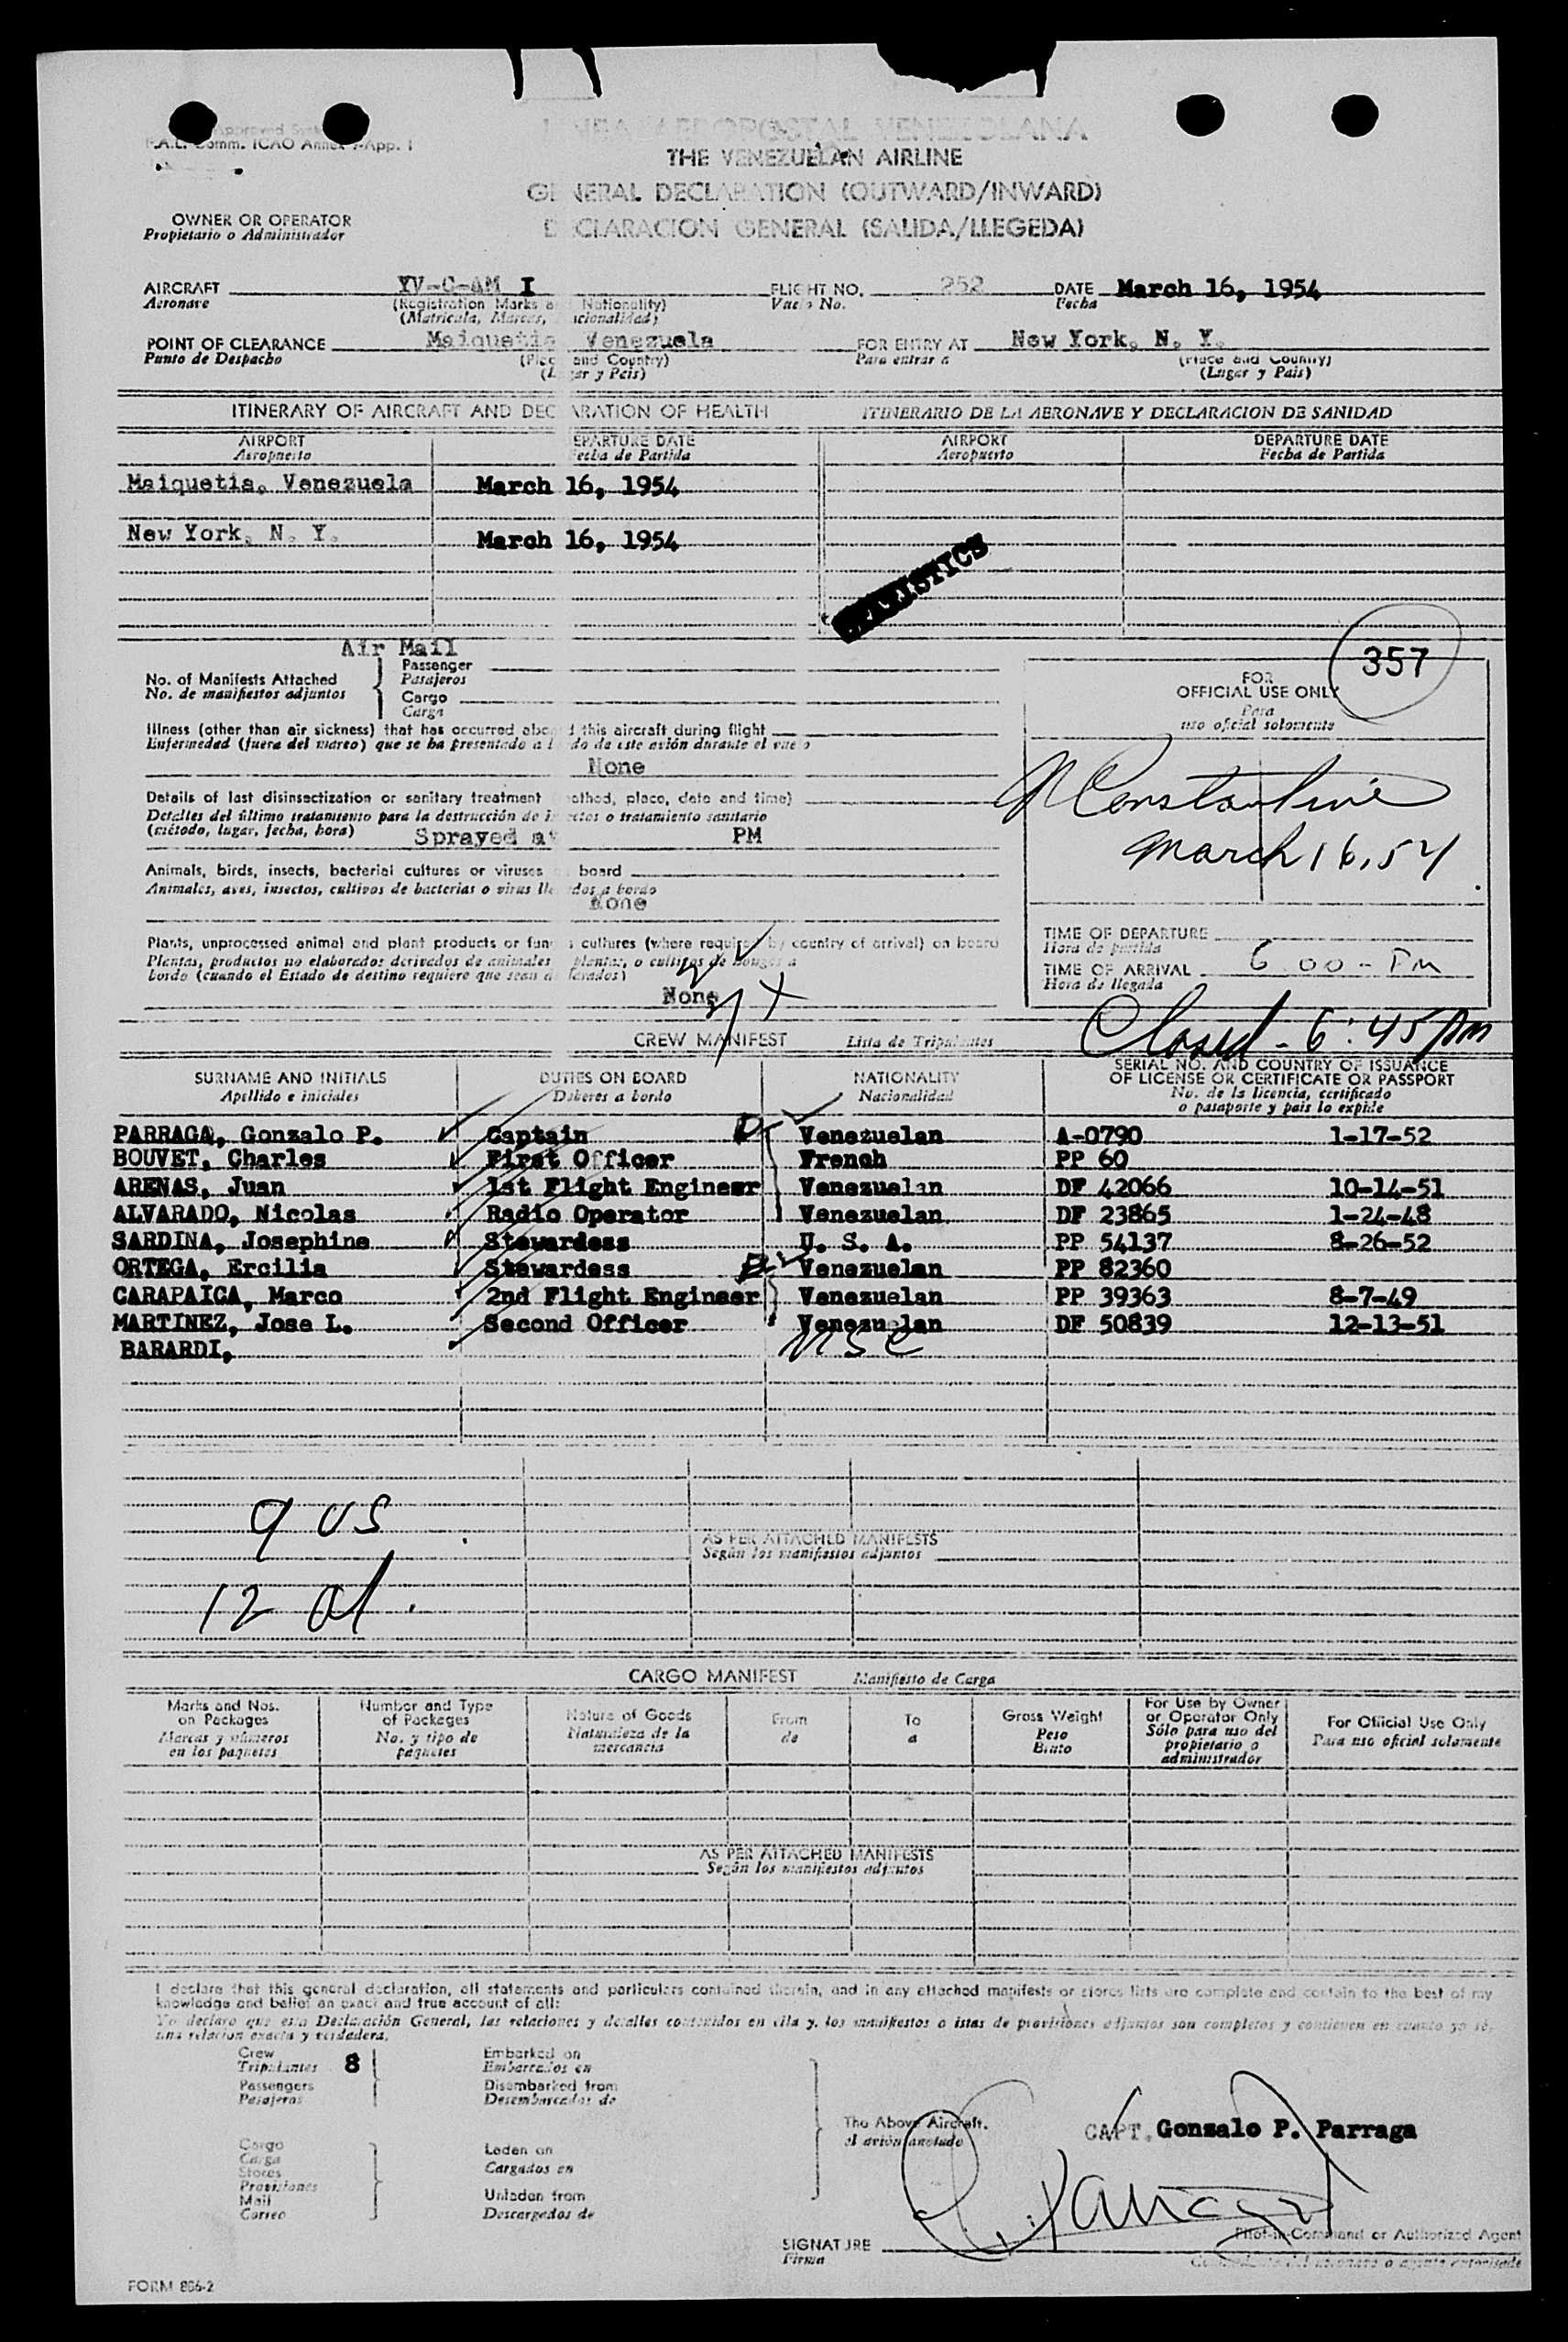 F.A.L. Comm. ICAO Annex App. 1
LINEA AEROPOSTAL VENEZOLANA
THE VENEZUELAN AIRLINE
GENERAL DECLARATION (OUTWARD/INWARD)
DECLARACION GENERAL (SALIDA/LLEGEDA)
OWNER OR OPERATOR
Propietario o Administrador
AIRCRAFT YV-C-AM I FLIGHT NO. 252 DATE March 16, 1954
Aeronave (Registration Marks and Nationality) Vuelo No. Fecha
(Matricula, Marcas, Nacionalidad)
POINT OF CLEARANCE Maiquetia Venezuela FOR ENTRY AT New York, N. Y.
Punto de Despacho (Place and Country) Para entrar a (Place and Country)
(Lugar y Pais) (Lugar y Pais)
ITINERARY OF AIRCRAFT AND DECLARATION OF HEALTH ITINERARIO DE LA AERONAVE Y DECLARACION DE SANIDAD
AIRPORT DEPARTURE DATE AIRPORT DEPARTURE DATE
Aeropuerto Fecha de Partida Aeropuerto Fecha de Partida
Maiquetia, Venezuela March 16, 1954
New York, N. Y. March 16, 1954
STATISTICS
Air Mail
357
No. of Manifests Attached Passenger
No. de manifiestos adjuntos Pasajeros
Cargo
Carga
FOR
OFFICIAL USE ONLY
Para
uso oficial solomente
Illness (other than air sickness) that has occurred aboard this aircraft during flight
Enfermedad (fuera del mareo) que se ha presentado a bordo de este avión durante el vuelo
None
Details of last disinsectization or sanitary treatment (method, place, date and time)
Detalles del último tratamiento para la destrucción de insectos o tratamiento sanitario
(método, lugar, fecha, hora) Sprayed at PM
Constantine
March 16, 54
Animals, birds, insects, bacterial cultures or viruses on board
Animales, aves, insectos, cultivos de bacterias o virus llevados a bordo
None
Plants, unprocessed animal and plant products or fungus cultures (where required by country of arrival) on board
Plantas, productos no elaborados derivados de animales o plantas, o cultivos de hongos a
bordo (cuando el Estado de destino requiere que sean declarados)
None
TIME OF DEPARTURE
Hora de partida
TIME OF ARRIVAL 6 00 - PM
Hora de llegada
Closed - 6:45 pm
CREW MANIFEST Lista de Tripulantes
SURNAME AND INITIALS DUTIES ON BOARD NATIONALITY SERIAL NO. AND COUNTRY OF ISSUANCE
OF LICENSE OR CERTIFICATE OR PASSPORT
Apellido e iniciales Deberes a bordo Nacionalidad No. de la licencia, certificado
o pasaporte y pais lo expide
PARRAGA, Gonzalo P. Captain Venezuelan A-0790 1-17-52
BOUVET, Charles First Officer French PP 60
ARENAS, Juan 1st Flight Engineer Venezuelan DF 42066 10-14-51
ALVARADO, Nicolas Radio Operator Venezuelan DF 23865 1-24-48
SARDINA, Josephine Stewardess U. S. A. PP 54137 8-26-52
ORTEGA, Ercilia Stewardess Venezuelan PP 82360
CARAPAICA, Marco 2nd Flight Engineer Venezuelan PP 39363 8-7-49
MARTINEZ, Jose L. Second Officer Venezuelan DF 50839 12-13-51
BARARDI,
9 US
AS PER ATTACHED MANIFESTS
Según los manifiestos adjuntos
12 al.
CARGO MANIFEST Manifiesto de Carga
Marks and Nos. on Packages Number and Type of Packages Nature of Goods From To Gross Weight For Use by Owner or Operator Only For Official Use Only
Marcas y números en los paquetes No. y tipo de paquetes Naturaleza de la mercancia de a Peso Bruto Sólo para uso del propietario o administrador Para uso oficial solamente
AS PER ATTACHED MANIFESTS
Según los manifiestos adjuntos
I declare that this general declaration, all statements and particulars contained therein, and in any attached manifests or stores lists are complete and contain to the best of my
knowledge and belief an exact and true account of all:
Yo declaro que esta Declaración General, las relaciones y detalles contenidos en ella y, los manifiestos o istas de provisiones adjuntos son completos y contienen en cuanto yo sé,
una relacion exacta y verdadera.
Crew Embarked on
Tripulantes 8 Embarcados en
Passengers Disembarked from
Pasajeros Desembarcados de
The Above Aircraft. CAPT. Gonzalo P. Parraga
el avión anotado
Cargo
Carga Laden on
Stores Cargados en
Provisiones
Mail Unladen from
Correo Descargados de
SIGNATURE Pilot-in-Command or Authorized Agent
Firma
FORM 886-2